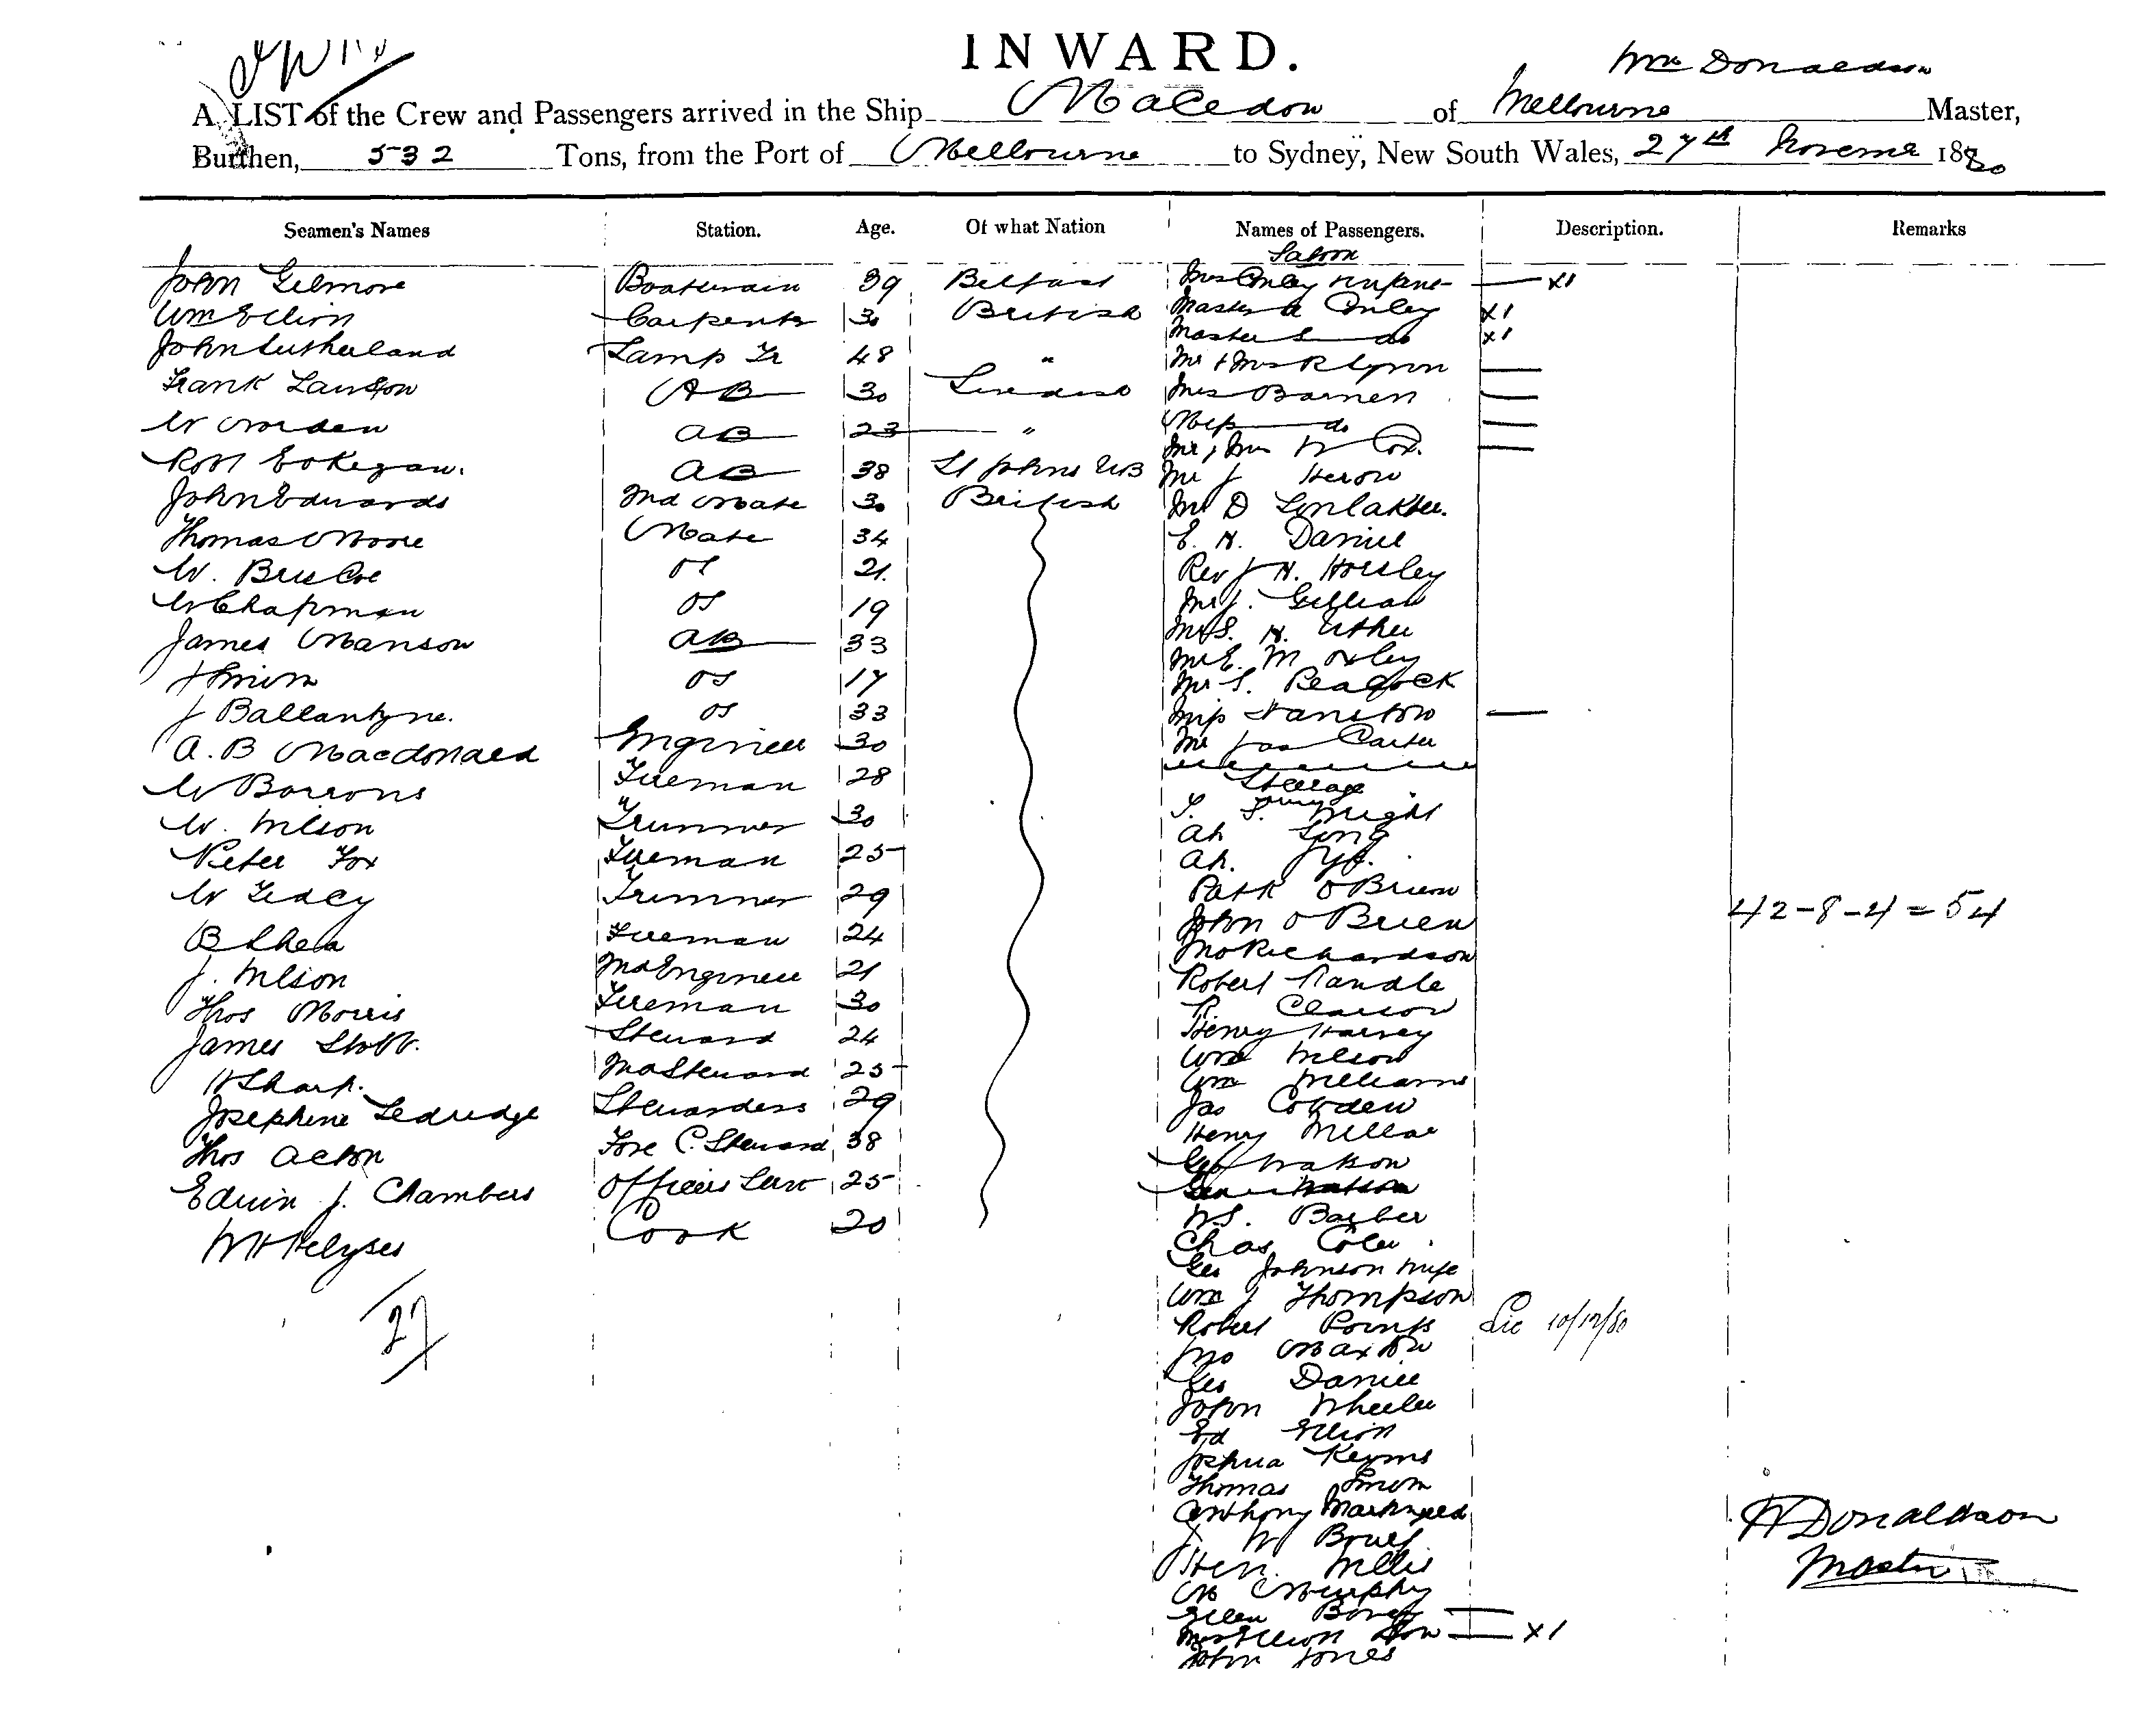 INWARD.
Wm Donaldson
A LIST of the Crew and Passengers arrived in the Ship Macedon of Melbourne Master,
Burthen, 532 Tons, from the Port of Melbourne to Sydney, New South Wales, 27th Novemer 1880
Seamen's Names Station. Age. Of what Nation Names of Passengers. Description. Remarks
Saloon
John Gilmore Boatswain 39 Belfast Mrs Onley Infant x1
Wm Elliott Carpenter 30 British Master A Onley x1
John Sutherland Lamp Tr 48 " Master S do x1
Mr & Mrs R Lyron
Frank Lawson AB 30 Swedish Mrs Barnen
W AB 23 " Miss do
Mr & Mrs W Cox.
Robt AB 38 St Johns NB Mr J Heron
John Edwards 2nd Mate 30 British Mr D
Thomas Moore Mate 34 E. H. Daniel
W. Briscoe OS 21. Rev J H. Horsley
W Chapman OS 19 Mr J. Gillian
James Manson AB 33 Mr S. H. Usher
J Smith OS 17 Mr E. M Oxley
Mr S. Peacock
J Ballantyne. OS 33 Miss
A. B Macdonald Engineer 30 Mr Jas Carter
W Barrons Fireman 28 Steerage
W. Wilson Trimmer 30 T. S. Wright
Ah Long
Peter Fox Fireman 25 Ah.
W Trimmer 29 Patk O Brien
John O Brien
42-8-4=54
B Shea Fireman 24 Jno Richardson
J. Wilson 2nd Engineer 21 Robert Randle
Thos Morris Fireman 30 R. Clarson
James Stobb. Steward 24 Henry Harvey
Wm Wilson
H Sharp. 2nd Steward 25 Wm Williams
Josephine Ledridge Stewardess 29 Jas Cowden
Thos Acton Fore C. Steward 38 Henry Millar
Geo Watson
Edwin J. Chambers Officers Serv 25 Geo Watson
W H Cook 20 W S. Barber
Chas Coles
Geo Johnson Wife
27
Wm J Thompson
Robert Points
Lic 10/12/80
Jno Maxton
Geo Daniel
John Wheeler
Ed Elliott
Joshua Keyms
Thomas Smith
Anthony
J W Bowes
H Donaldson
Hen. Willis
Master
M Murphy
Ellen
Mrs Elliott Son x1
John Jones